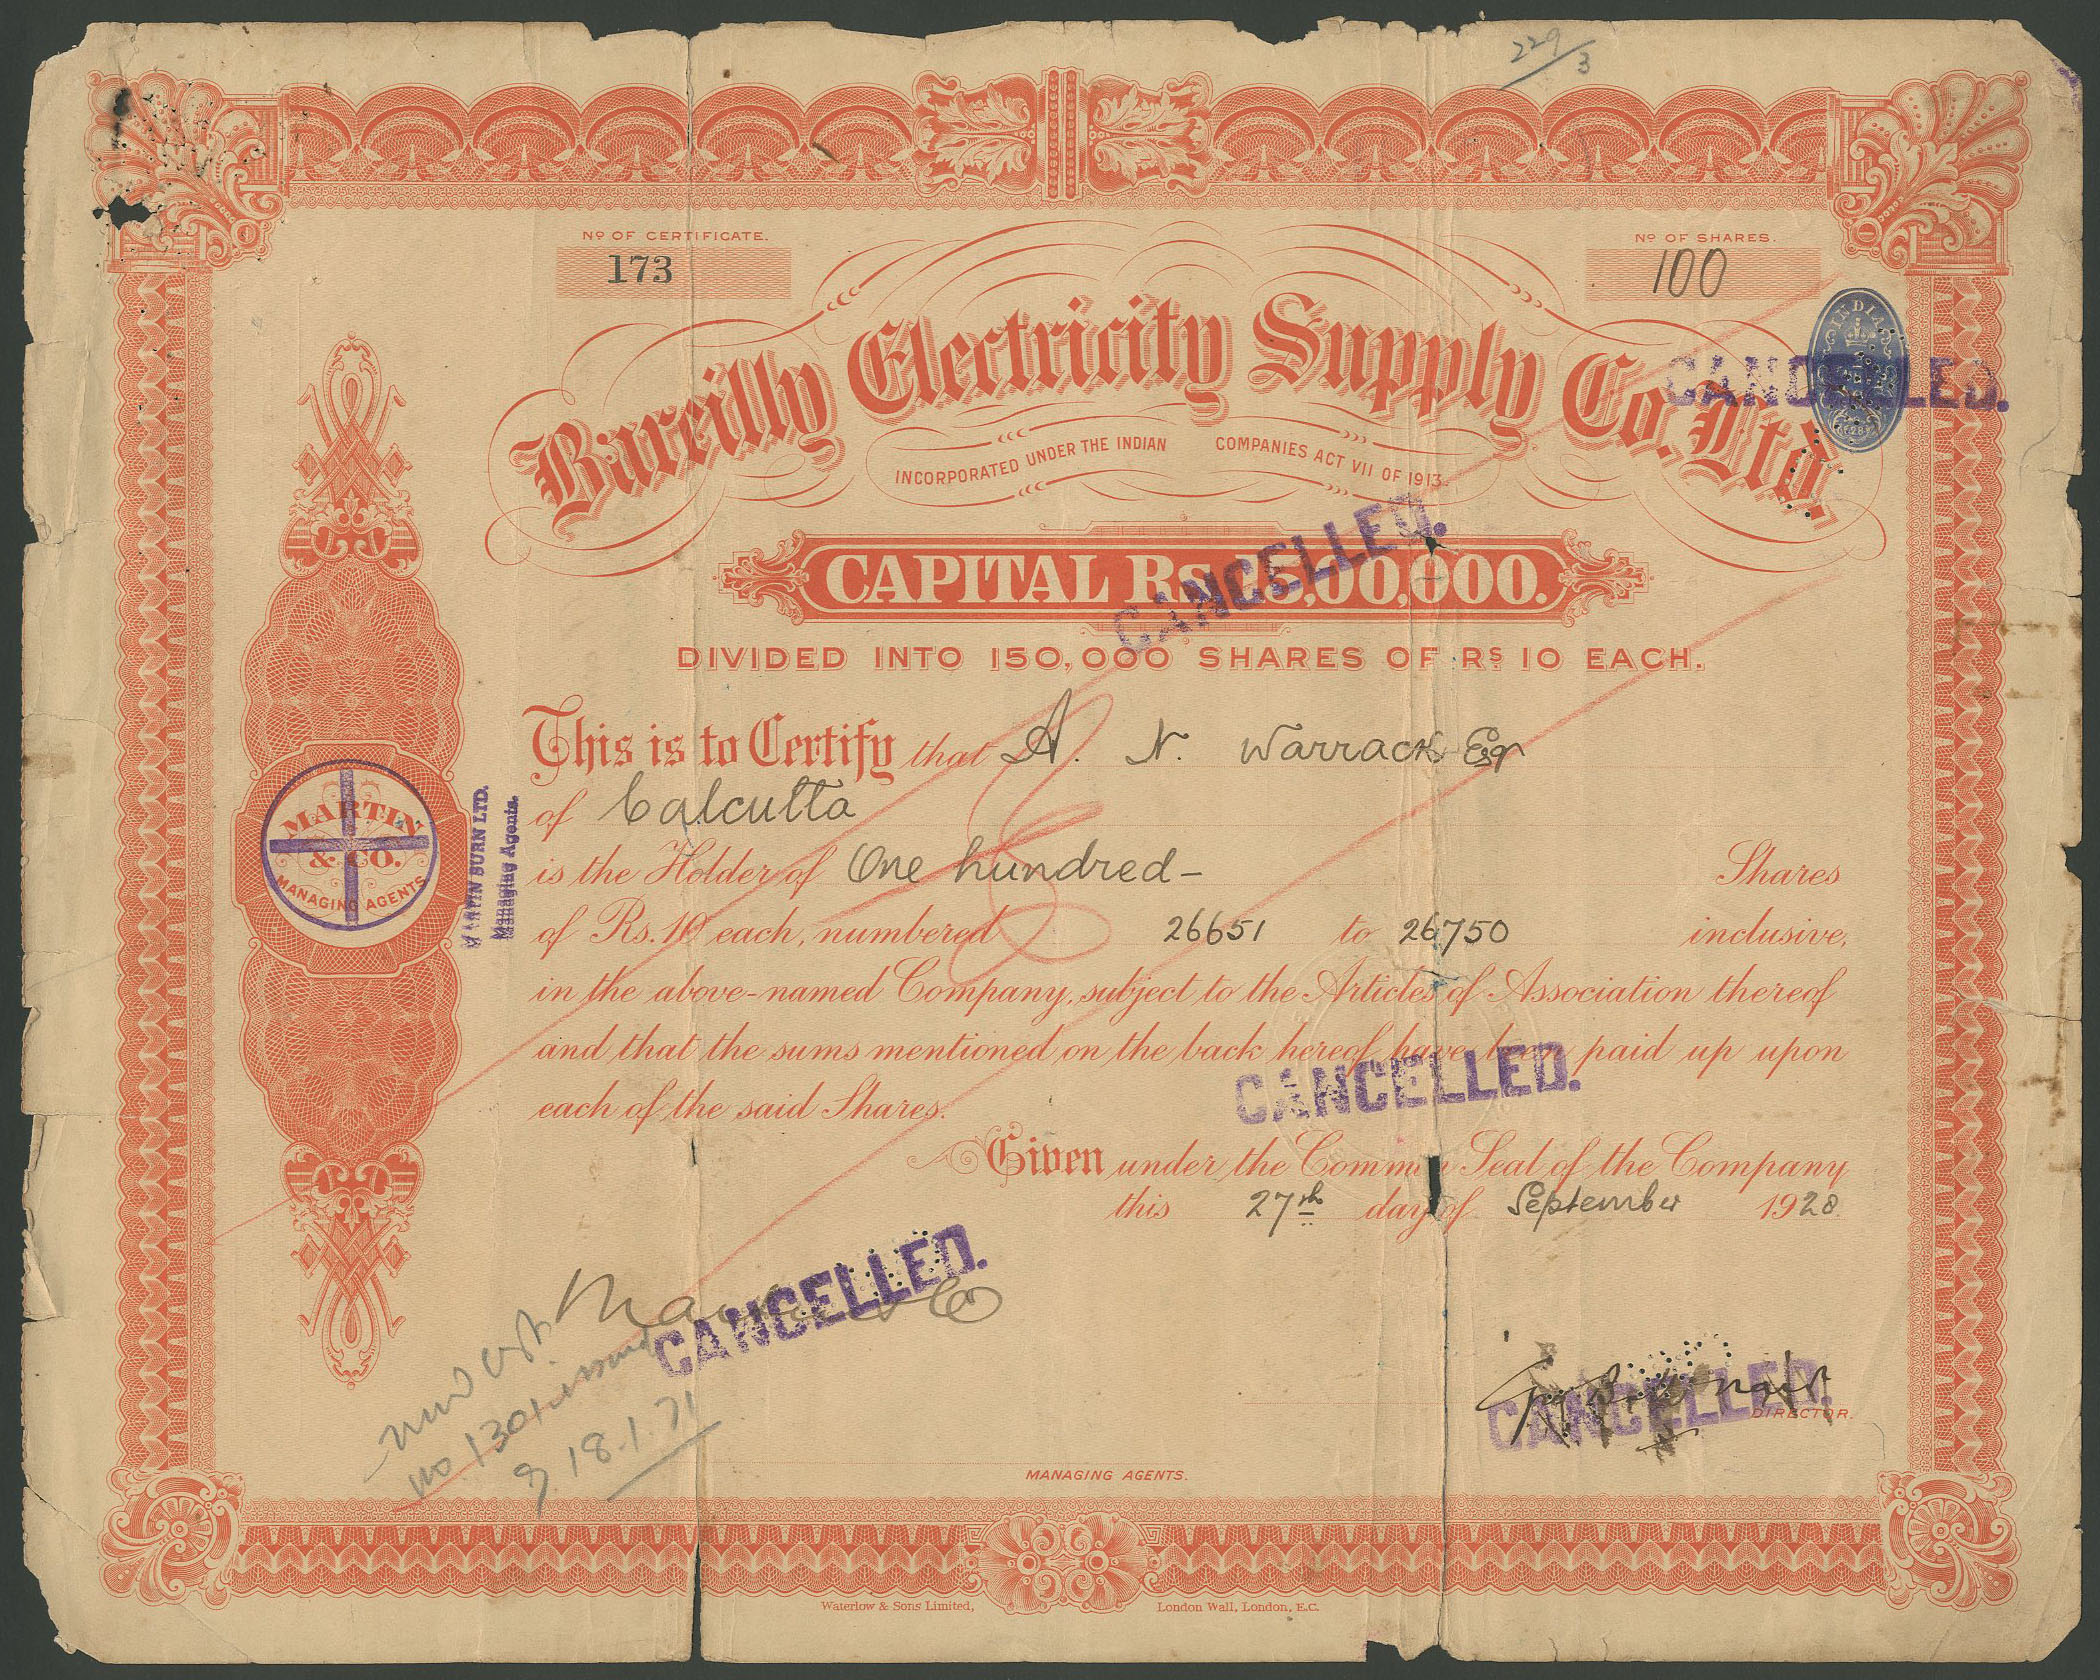 229/3
Nº OF CERTIFICATE.
173
Nº OF SHARES.
100
INDIA
Bareilly Electricity Supply Co. Ltd.
CANCELLED.
INCORPORATED UNDER THE INDIAN COMPANIES ACT VII OF 1913.
CANCELLED.
CAPITAL Rs. 15,00,000.
DIVIDED INTO 150,000 SHARES OF RS 10 EACH.
This is to Certify that A. N. Warrack Esqr
of Calcutta
is the Holder of One hundred - Shares
of Rs. 10 each, numbered 26651 to 26750 inclusive,
in the above-named Company, subject to the Articles of Association thereof
and that the sums mentioned on the back hereof have been paid up upon
each of the said Shares.
CANCELLED.
MARTIN
& CO.
MANAGING AGENTS
MARTIN BURN LTD.
Managing Agents.
Given under the Common Seal of the Company
this 27th day of September 1928
CANCELLED.
no 1301 issued
18.1.71
CANCELLED.
DIRECTOR.
MANAGING AGENTS.
Waterlow & Sons Limited, London Wall, London, E.C.